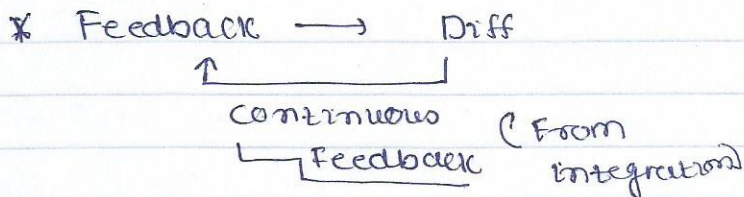 * Feedback → Diff
continuous (From
Feedback integration)